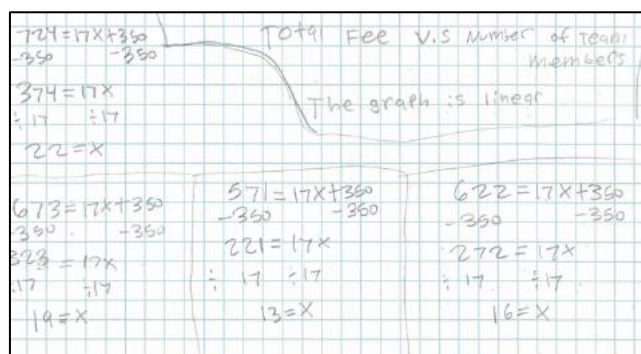 724=17x+350
-350 -350
374=17x
÷17 ÷17
22=x
Total Fee V.S Number of Team
members
The graph is linear
673=17x+350
-350 -350
323=17x
÷17 ÷17
19=x
571=17x+350
-350 -350
221=17x
÷ 17 ÷17
13=x
622=17x+350
-350 -350
272=17x
÷ 17 ÷17
16=x